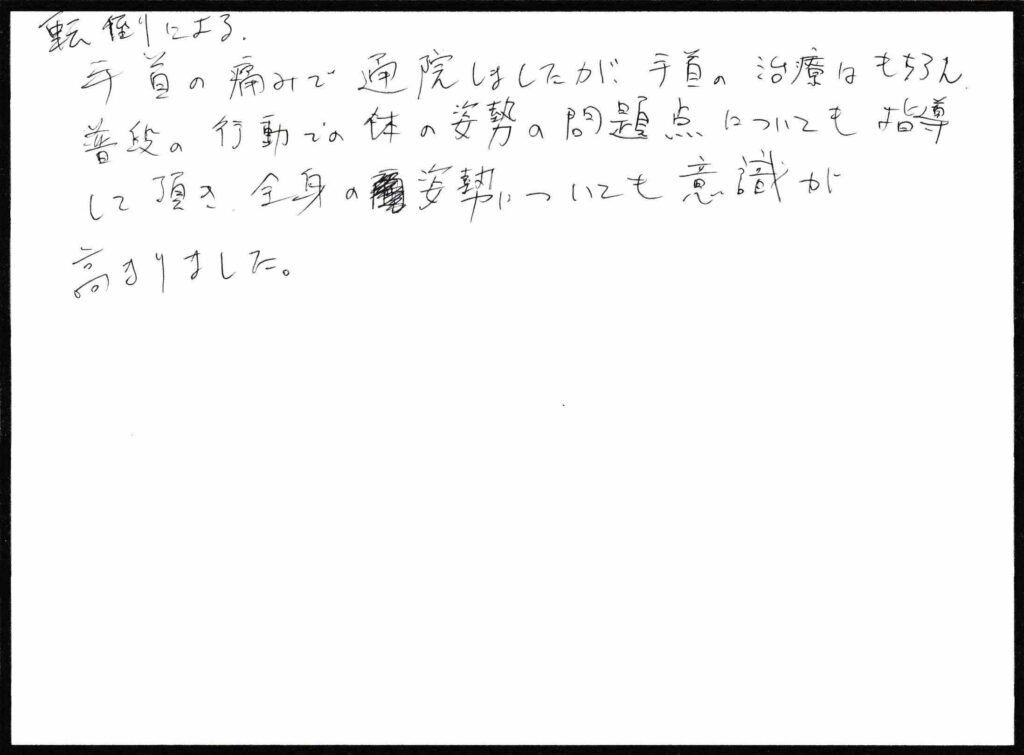 転倒による.
手首の痛みで通院しましたが、手首の治療はもちろん、
普段の行動での体の姿勢の問題点についても指導
して頂き、全身の姿勢についても意識が
高まりました。